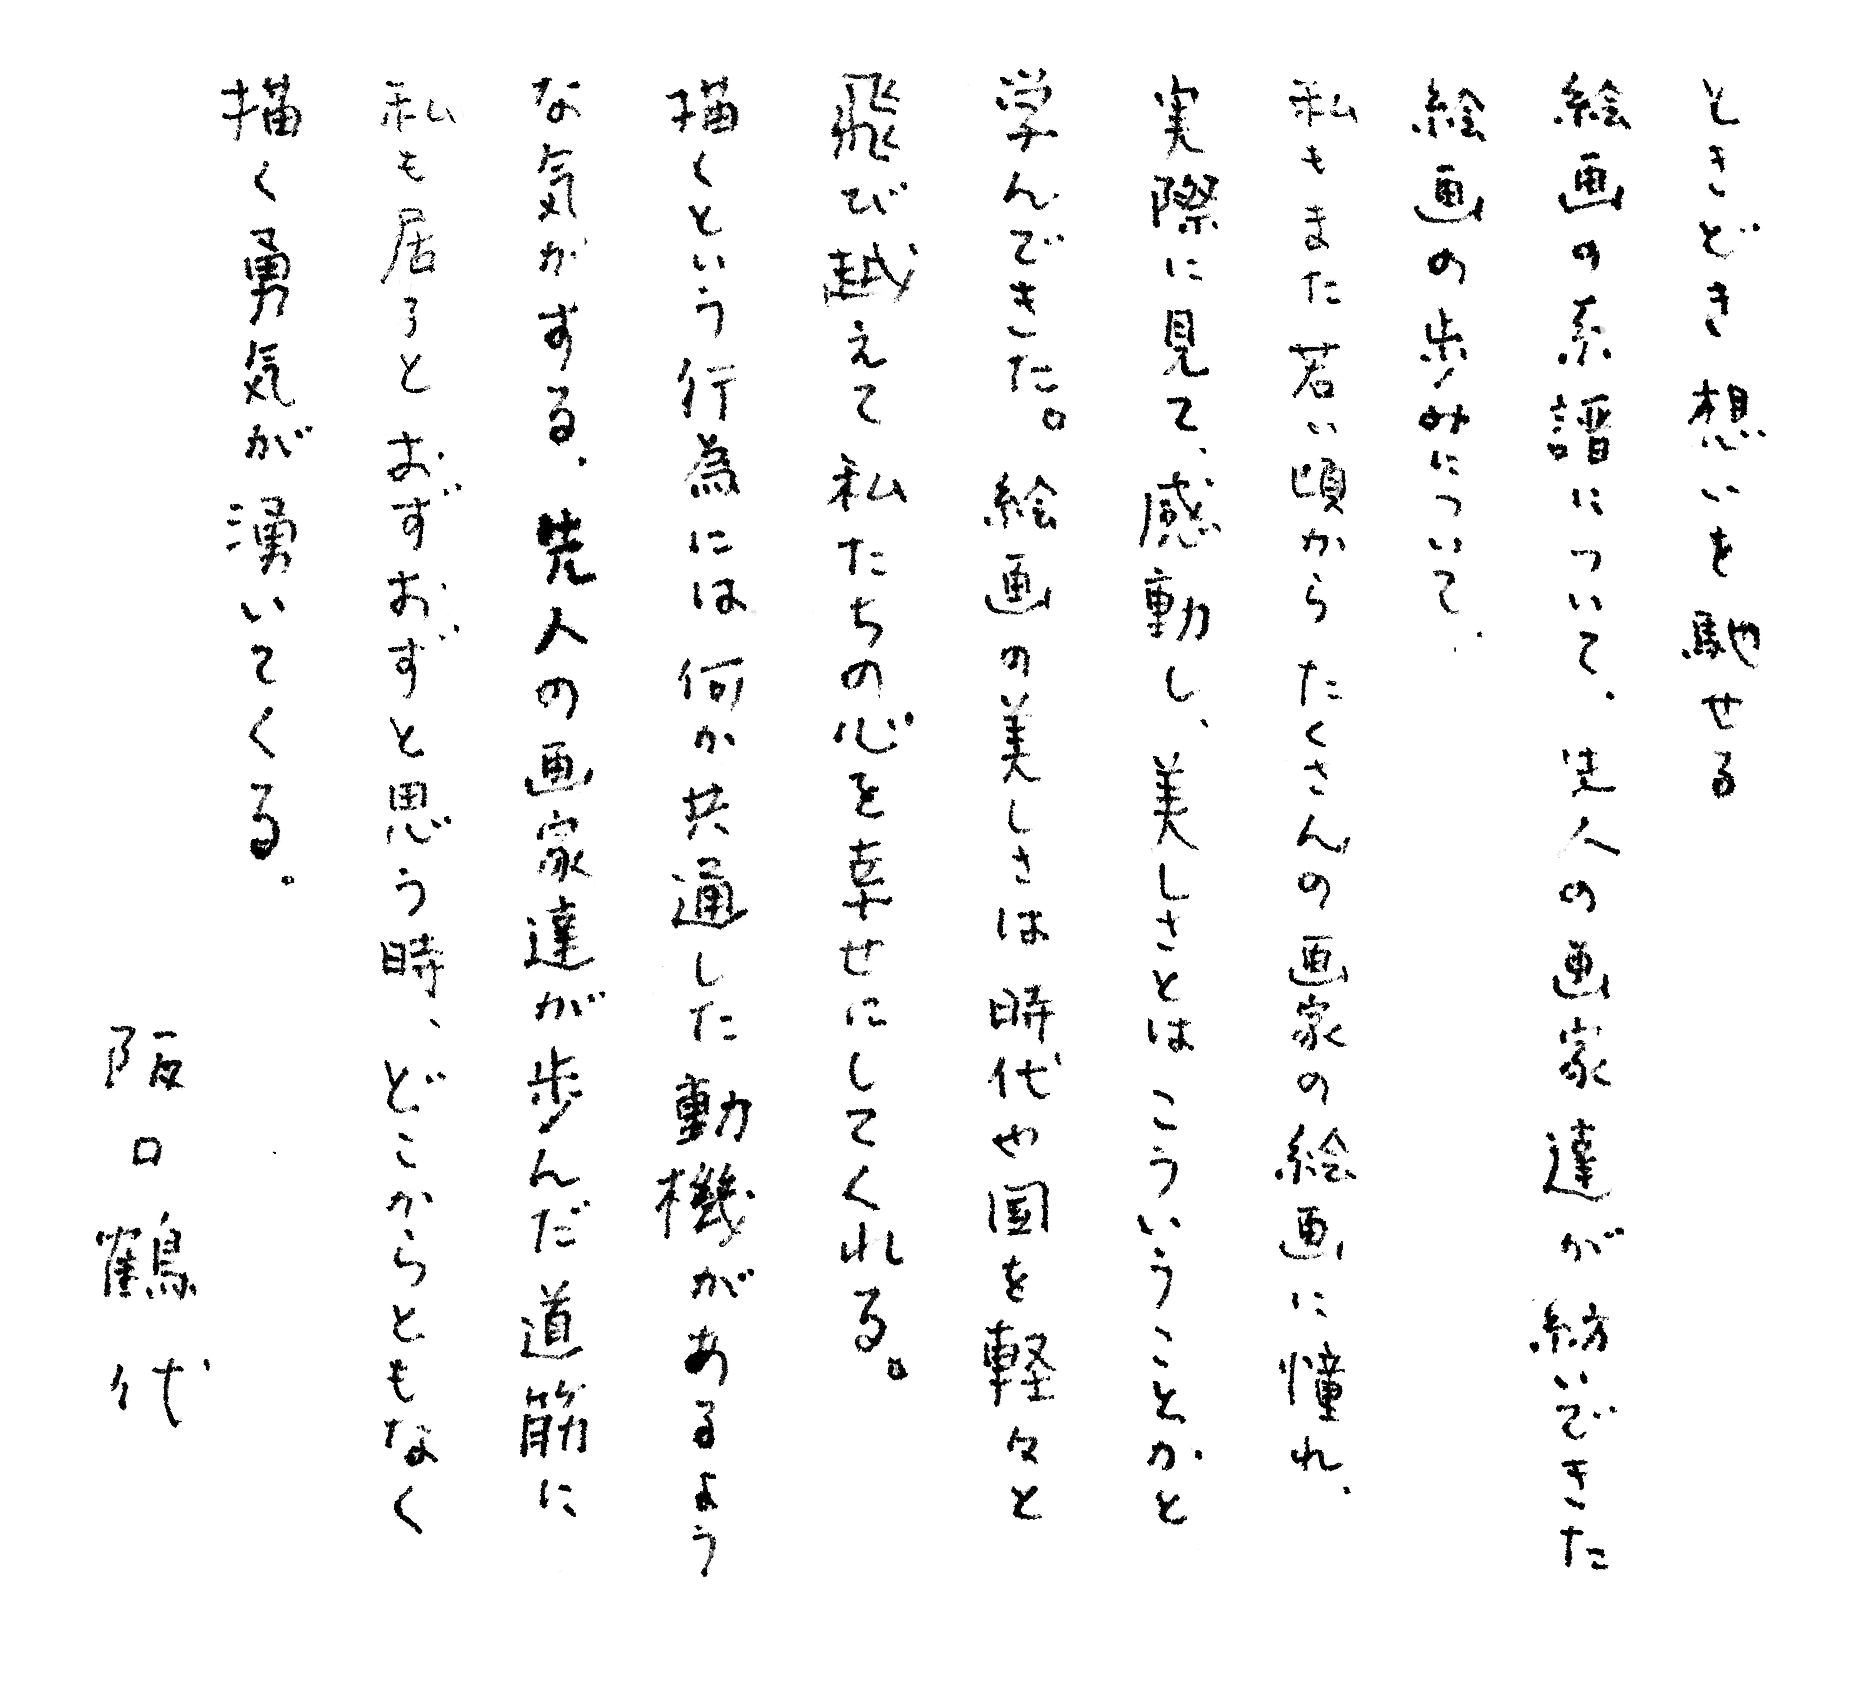 ときどき想いを馳せる
絵画の系譜について、先人の画家達が紡いできた
絵画の歩みについて、
私もまた若い頃からたくさんの画家の絵画に憧れ、
実際に見て、感動し、美しさとはこういうことかと
学んできた。絵画の美しさは時代や国を軽々と
飛び越えて私たちの心を幸せにしてくれる。
描くという行為には何か共通した動機があるよう
な気がする、先人の画家達が歩んだ道筋に
私も居るとおずおずと思う時、どこからともなく
描く勇気が湧いてくる。
阪口鶴代